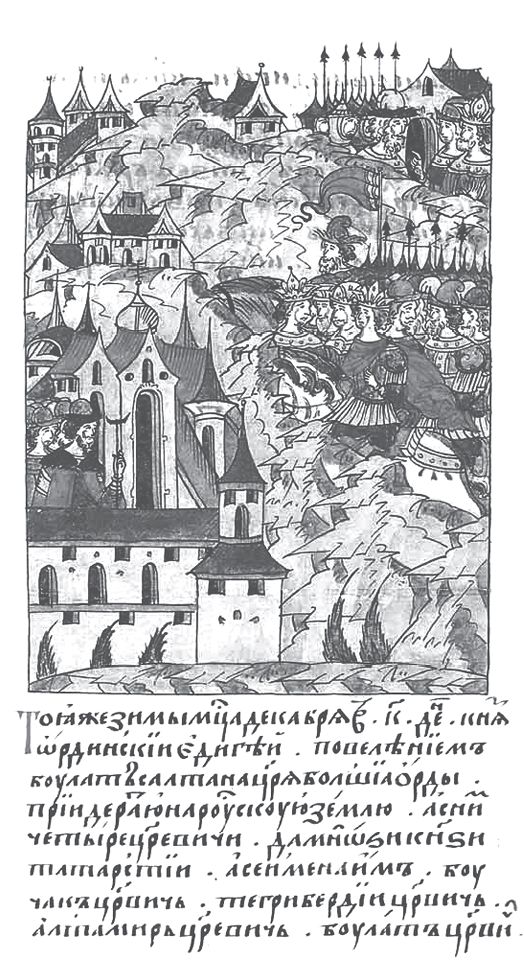 Тоꙗ же зимы мц҃а декабрѧ въ . к҃ . дн҃ь . кнѧ҃
ѡрдинскїи єдигѣй . повелѣнїемъ
боулатъ салтана цр҃ѧ болшїа ѻрды .
прїиде ратїю на роускоую землю . а с ни
четыре цр҃евичи . да мнѡѕи кн҃ѕи
татарстїи . а се имена имъ . боу
чакъ цр҃вичь . тегрибердїи цр҃вичь .
алтамирь цр҃евичь . боулатъ цр҃вич